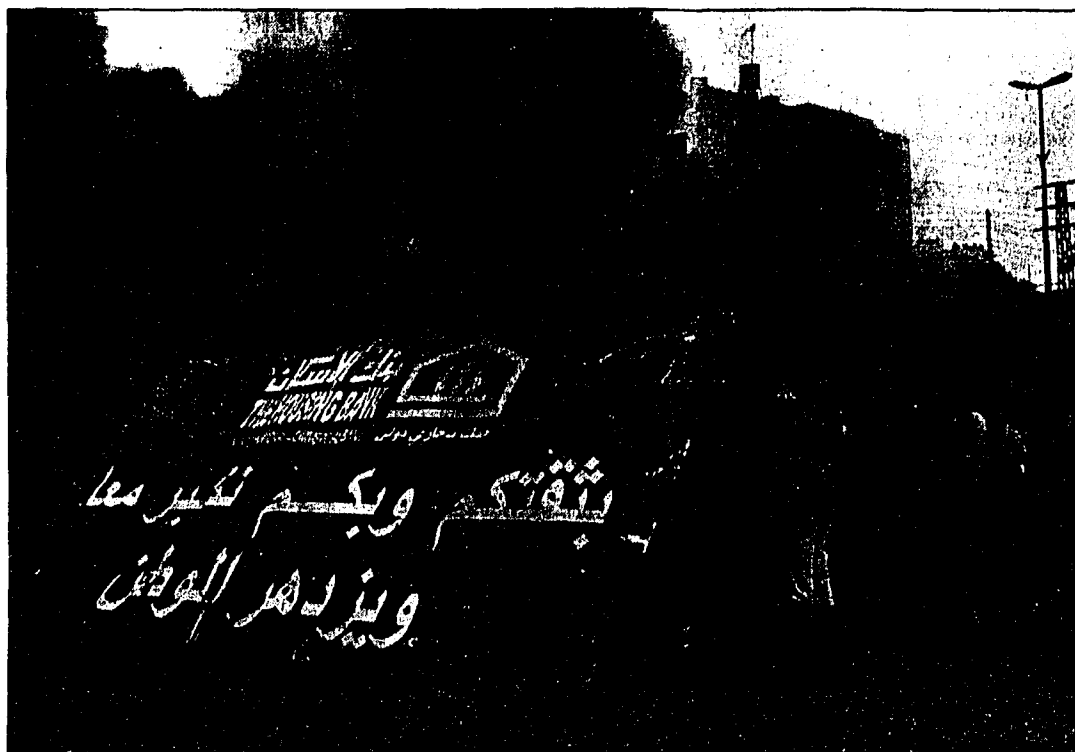 بنك الإسكان
THE HOUSING BANK
بثقتكم وبكم نكبر معا
ويزدهر الوطن